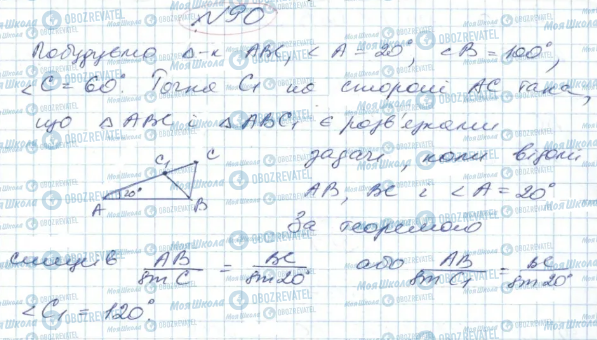 №90
Побудуємо △-к ABC, ∠A = 20°, ∠B = 100°,
∠C = 60°. Точка C₁ на стороні AC така,
що △ABC і △ABC₁ є розв'язками
задачі, коли відомі
AB, BC і ∠A = 20°
За теоремою
синусів AB/sin C = BC/sin 20° або AB/sin C₁ = BC/sin 20°
∠C₁ = 120°.
C₁ C
20°
A B
Моя Школа
OBOZREVATEL